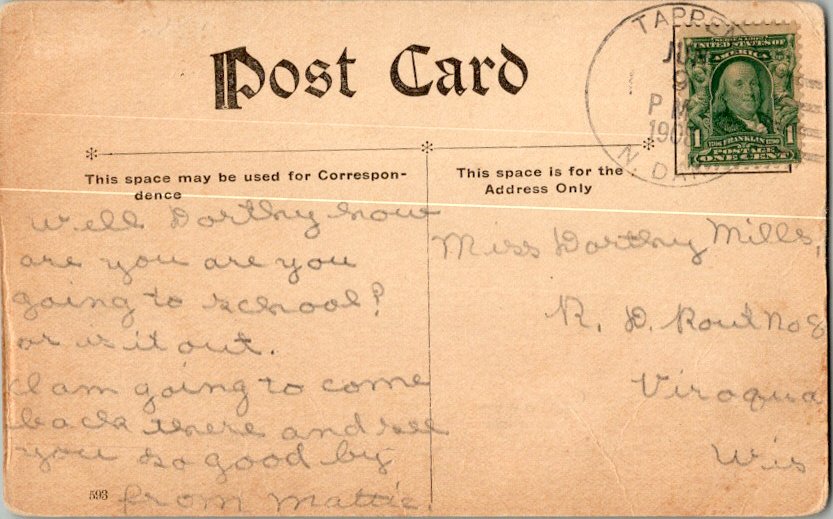 Post Card
This space may be used for Correspon-
dence
This space is for the
Address Only
TAPPEN
JUN
9
P M
190
N. DAK
SERIES 1902
UNITED STATES OF
AMERICA
1 1
1706 FRANKLIN 1790
POSTAGE
ONE CENT
Well Dorthy how
are you are you
going to school?
or is it out.
I am going to come
back there and see
you so good by
from Mattie
Miss Dorthy Mills,
R. D. Rout No 8
Viroqua
Wis
593